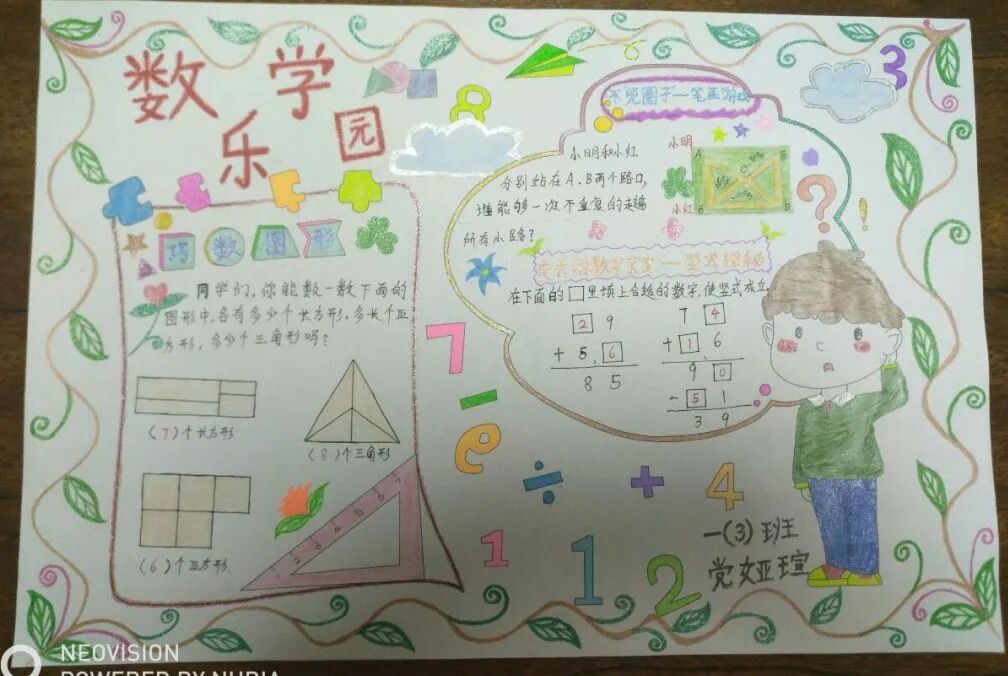 数学
乐园
巧数图形
同学们,你能数一数下面的
图形中,各有多少个长方形,多少个正
方形,多少个三角形吗?
(7)个长方形
(8)个三角形
(6)个正方形.
1 2 3 4 5 6 7
不兜圈子一笔画游戏
小明和小红
分别站在A、B两个路口,
谁能够一次不重复的走遍
所有小路?
小明
小红
A B
C
D
一竖式
在下面的□里填上合适的数字,使竖式成立.
2 9
+ 5 6
8 5
7 4
+ 1 6
9 0
- 5 1
3 9
8
3
?
!
7
-
÷
+
4
1
1
2
一(3)班
党娅瑄
NEOVISION
POWERED BY NUBIA